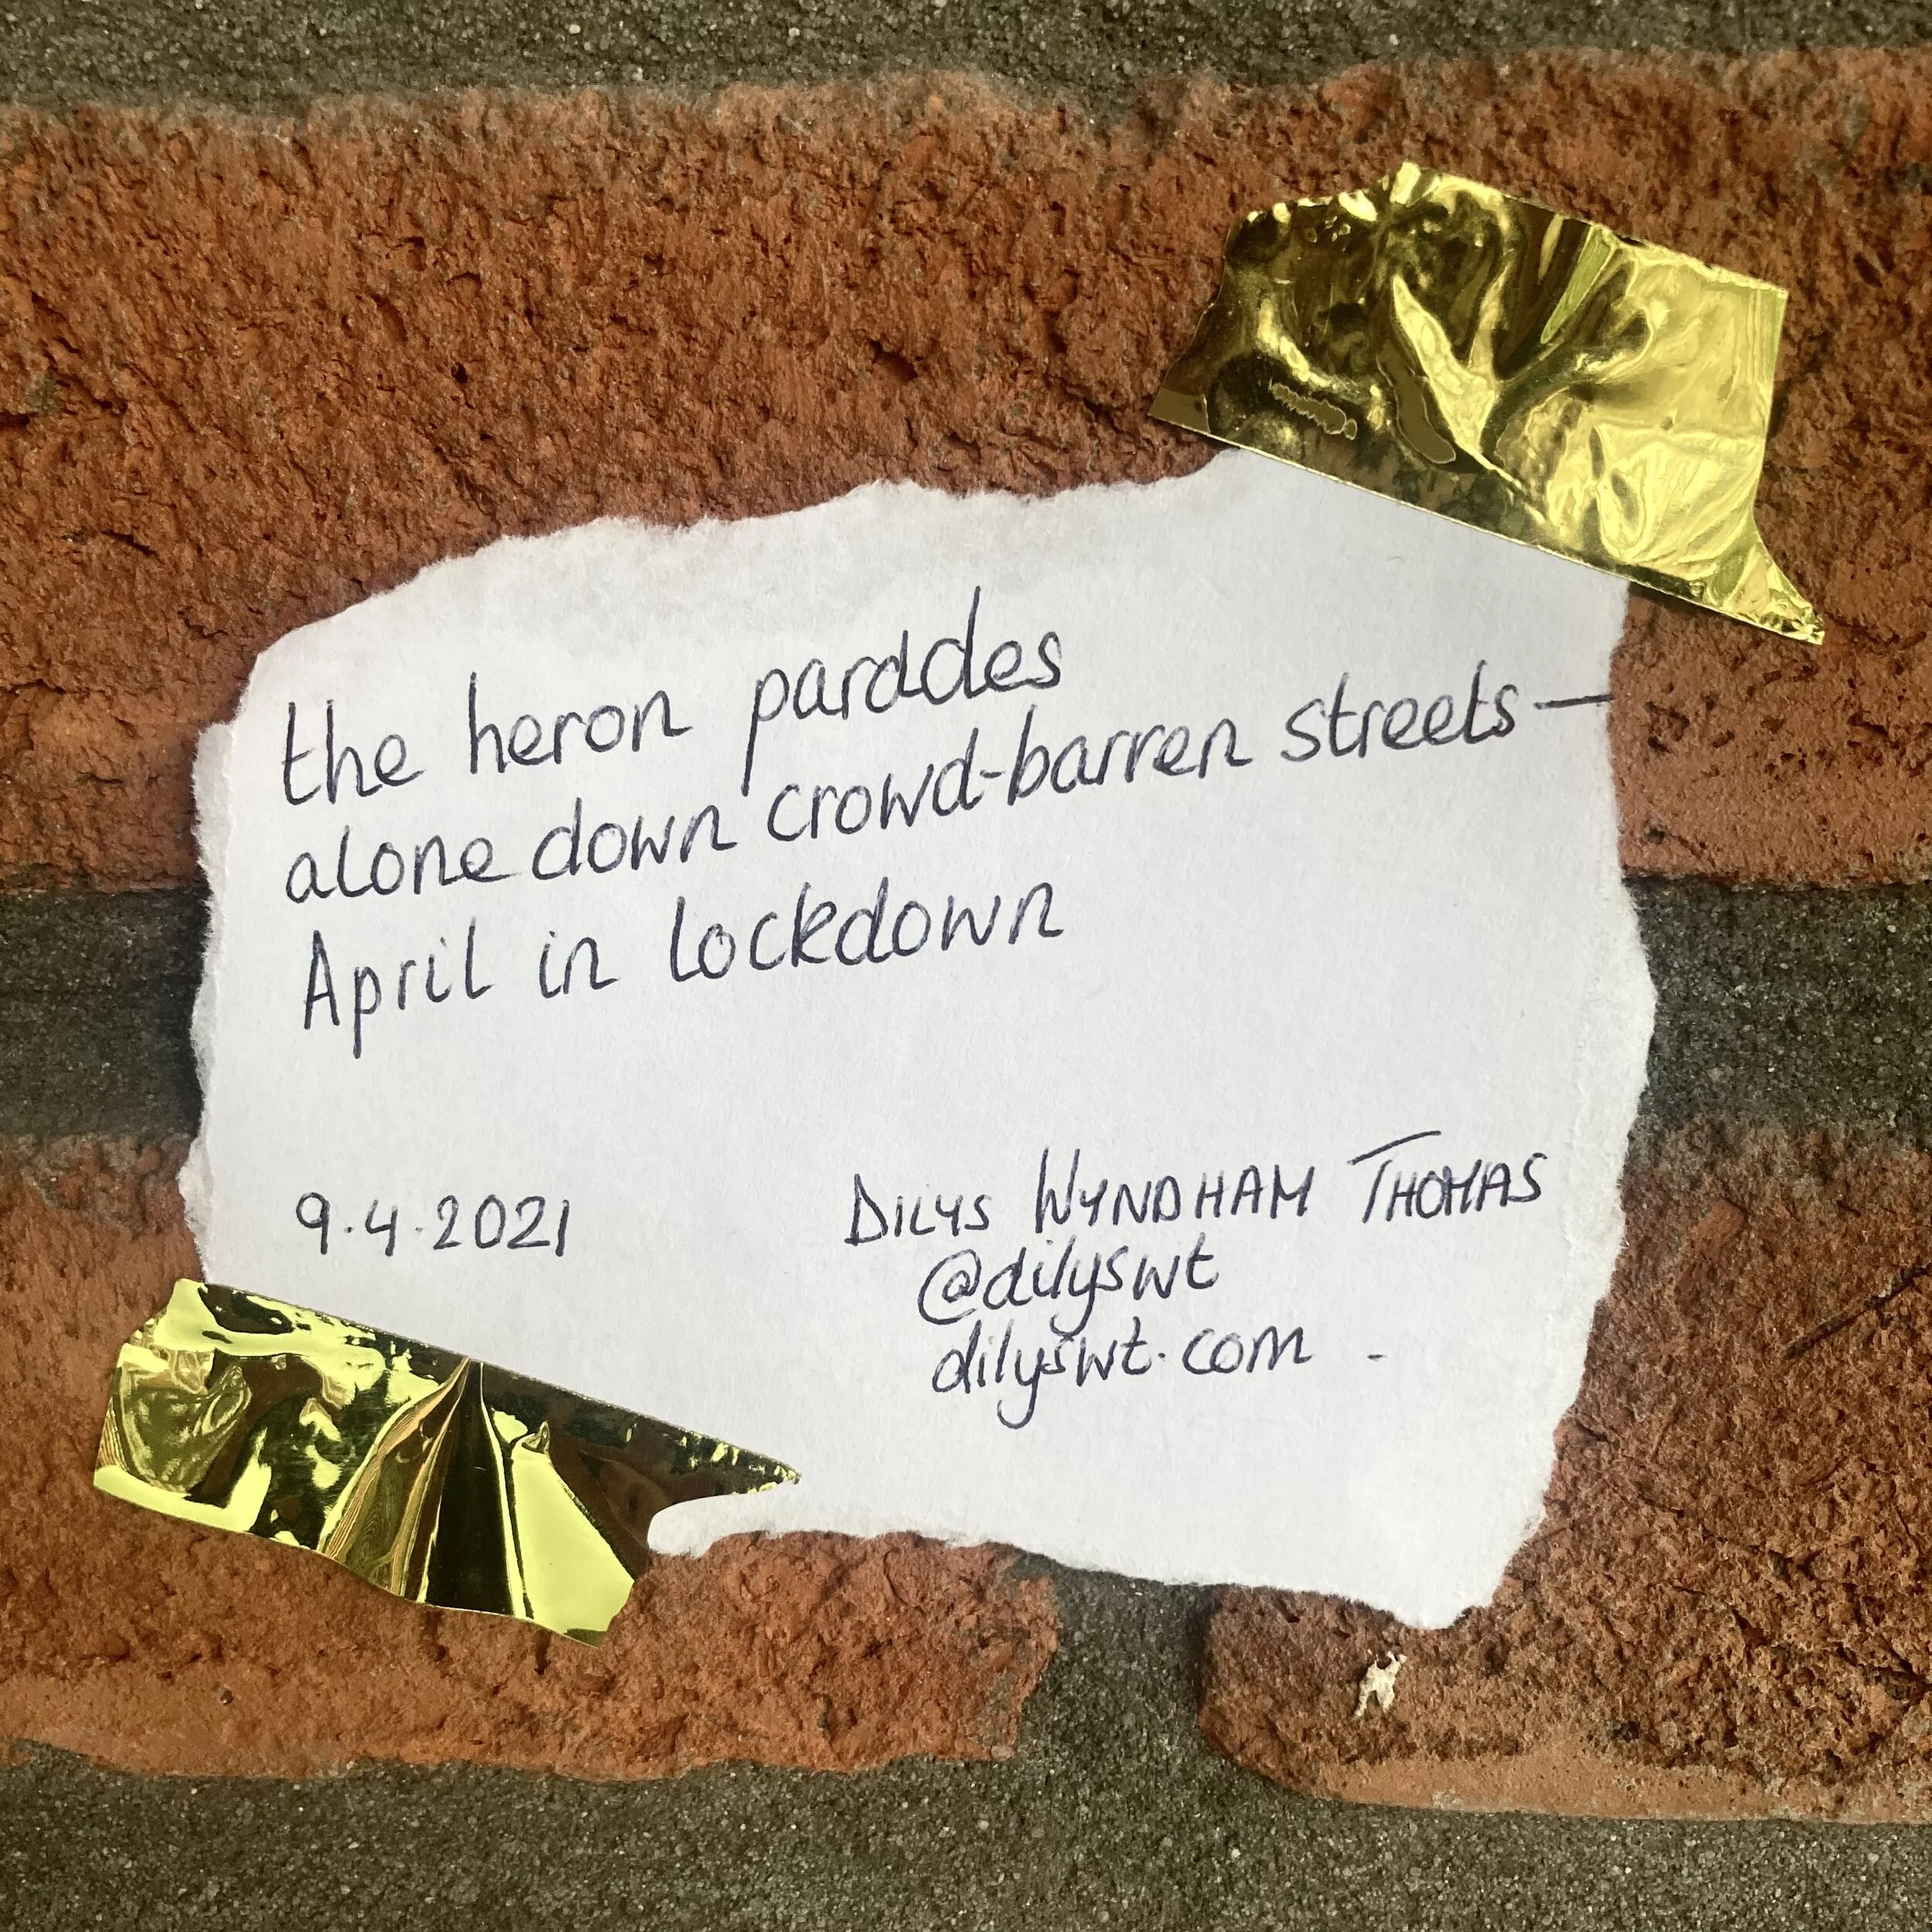 the heron parades
alone down crowd-barren streets—
April in lockdown
9.4.2021
DILYS WYNDHAM THOMAS
@dilyswt
dilyswt.com